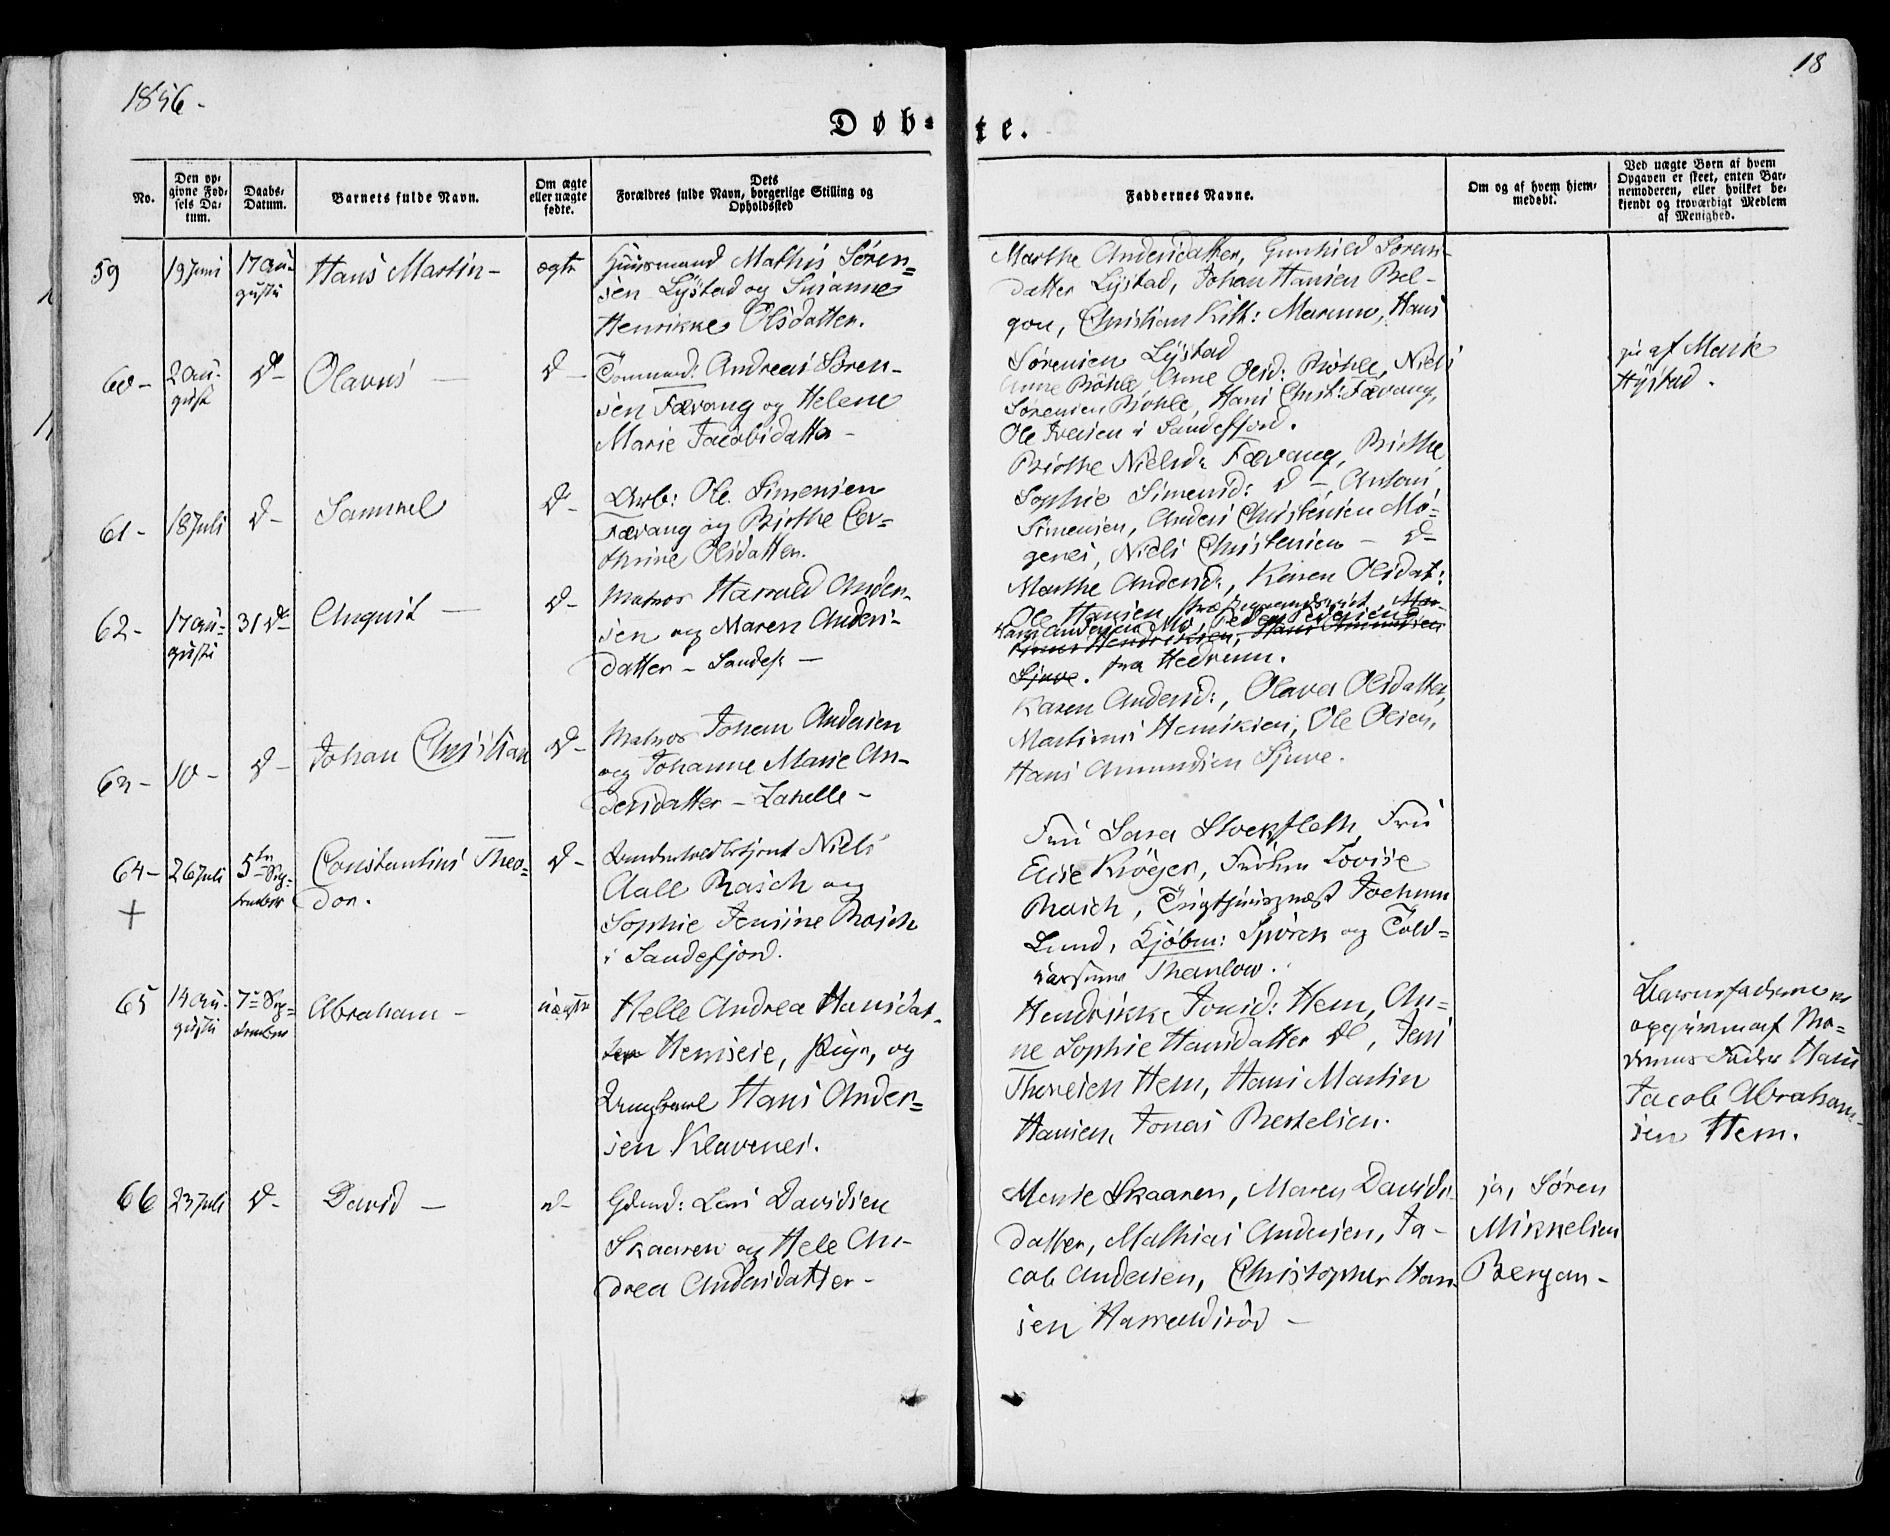 1856 -
18
Døb-
te.
No.
Den op-
givne Fød-
sels Da-
tum.
Daabs-
Datum.
Barnets fulde Navn.
Om ægte
eller uægte
fødte.
Dets
Forældres fulde Navn, borgerlige Stilling og
Opholdssted
Faddernes Navne.
Om og af hvem hjem-
medøbt.
Ved uægte Børn af hvem
Opgaven er skeet, enten Bar-
nemoderen, eller hvilket be-
kjendt og troværdigt Medlem
af Menighed.
59
19 Juni
17 Au-
gusti
Hans Martin -
ægte
Huusmand Mathis Søren=
sen Lystad og Susanne
Henrikke Olsdatter.
Marthe Andersdatter, Gunhild Sørens-
datter Lystad, Johan Hansen Bel-
gou, Christian, Hans
Sørensen Lystad
60 -
2 Au-
gust
d -
Olavus -
d -
Tømmerm: Andreas Søren-
sen Fævang og Helene
Marie Jacobsdatter -
Anne Bøhle, Anne Olsd: Bøhle, Niels
Sørensen Bøhle, Hans Christ: Fævang,
Ole Iversen i Sandefjord.
af Marie
Hystad.
61 -
18 Juli
d -
Samuel
d -
Arb: Ole Simensen
Fævang og Birthe Ca-
thrine Olsdatter.
Birthe Nielsd: Fævang, Birthe
Sophie Simensd: d -, Antoni
Simensen, Anders Christensen Mo-
genes, Niels Christensen - d -
62 -
17 Au-
gusti
31 d -
August -
d -
Matros Harrald Ander-
sen og Maren Anders-
datter - Sandef: -
Marthe Andersd:, Karen Olsdat:
Ole Hansen
Hans Andersen Mo, Peder Pedersen
Sjuve. fra Hedrum.
63 -
10 -
d -
Johan Christian
d -
Matros Johan Andersen
og Johanne Marie An-
dersdatter - Lahelle -
Karen Andersd:, Olava Olsdatter,
Martinus Henriksen, Ole Olsen,
Hans Amundsen Sjuve.
64 -
+
26 Juli
5te Sep-
tember
Constantius Theo-
dor.
d -
Undertoldbetjent Niels
Aall Rasch og
Sophie Jensine Rasch
i Sandefjord.
Fru Sara Stockfleth, Fru
Elise Krøger, Frøken Lovise
Rasch, Jochum
Lund, Kjøbm: Spørck og Told-
Thanlow.
65
14 Au-
gusti
7de Sep-
tember
Abraham -
uægte
Helle Andrea Hansdat-
ter Hemseie, Pige, og
Ungkarl Hans Ander=
sen Klavenes.
Hendrikke Jonsd: Hem, An-
ne Sophie Hansdatter d, Jens
Theresen Hem, Hans Martin
Hansen, Jonas Bertelsen.
Barnefaderen er
opgiven af Mo-
derens Fader Hans
Jacob Abraham-
sen Hem.
66
23 Juli
d -
David -
d -
Gdmd: Lars Davidsen
Skaaren og Hele An-
drea Andersdatter -
Marie Skaaren, Maren Davids-
datter, Mathias Andersen, Ja-
cob Andersen, Christopher Han-
sen Harraldsrød -
ja, Søren
Mikkelsen
Bergan -